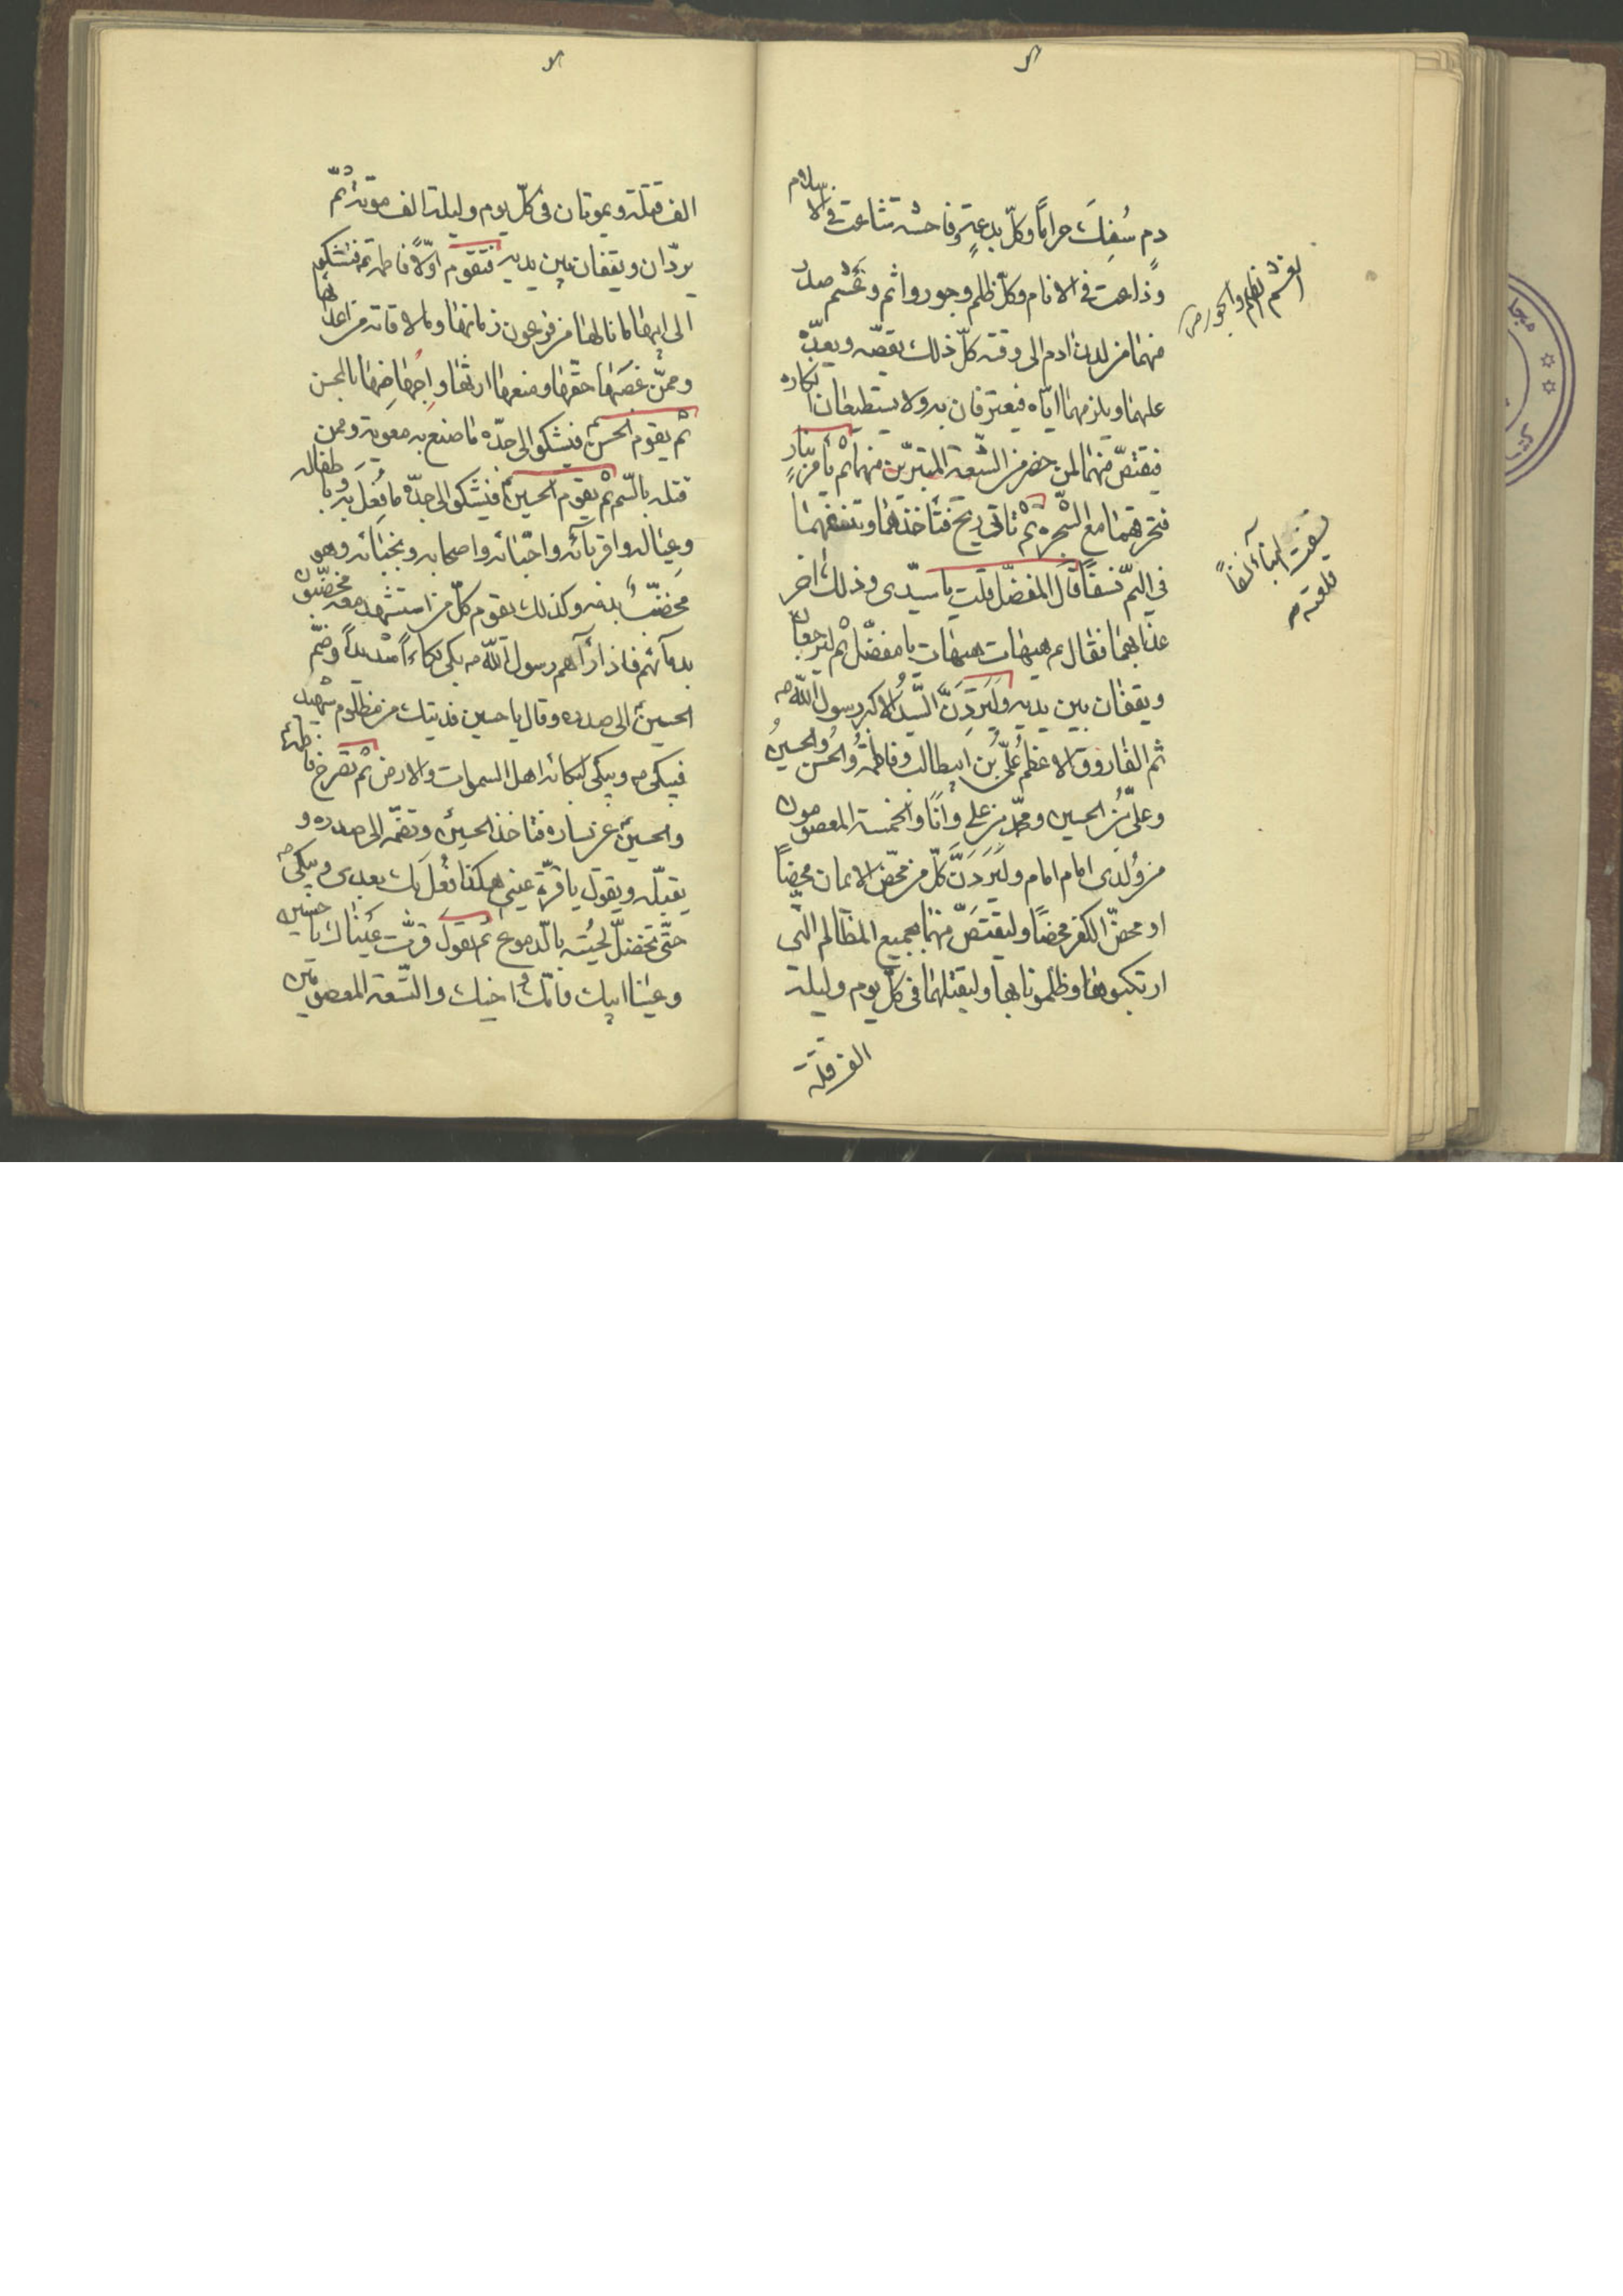 دم سُفِكَ حراماً وكلّ بدعةٍ وفاحشة تشاعت في الاسلام
وذاعت في الانام وكلّ ظلم وجور واثم وغشم صدر
منهما من لدن ادم الى وقته كلّ ذلك يقصّه ويعدّه
عليهما ويلزمهما ايّاه فيعترفان به ولا يستطيعان انكاره
فيقتصّ منهما لمن حضر من الشّيعة المتبرّين منهما ثم يأمر بنارٍ
فتحرقهما مع الشّجرة ثم تاتى ريح فتأخذهما وتنسفهما
في اليمّ نسفاً قال المفضّل قلت يا سيّدى وذلك اخر
عذابهما فقال ع هيهات هيهات يا مفضّل ثم ليرجعان
ويقفان بين يديه ولَيَرِدَنَّ السّيّد الاكبر رسول اللّه ص
ثم الفاروق الاعظم علىّ بن ابيطالب وفاطمةُ والحسن والحسينُ
وعلىّ بن الحسين ومحمّد بن على وانا والخمسة المعصومون
من وُلدى امام امام وليَردَنَّ كلّ من محّض الايمان محضاً
او محضّ الكفر محضاً وليقتصّ منهما بجميع المظالم التى
ارتكبوها وظلمونا بها وليقتلهما فى كلّ يوم وليلة
الف قتلة
الغشم الظلم والجور ص
نسفت البناء نسفاً
قلعته ص
الف قتلة ويموتان فى كلّ يوم وليلة الف موتة ثُمّ
يردّان ويقفان بين يديه فتقوم اوّلاً فاطمة ع فتشكو
الى ابيها ما نالها من فرعون زمانها وما لاقاته من اعدائها
وممّن غصبها حقّها ومنعها ارثها واجهاضها بالمحسن
ثم يقوم الحسن ع فيشكو الى جدّه ما صنع به معوية ومن
قتله بالسّم ثم يقوم الحسين ع فيشكو الى جدّه ما فُعِلَ به باطفاله
وعياله واقربآئه واحبّائه واصحابه ونجبائه وهو
مخضّبٌ بدمه وكذلك يقوم كلّ من استشهد معه مخضّبون
بدمآئهم فاذا رآهم رسول اللّه ص بكى بكاءاً شديداً وضمّ
الحسين ع الى صدره وقال يا حسين فديتك من مظلوم شهيد
فيبكى ص ويبكى لبكائه اهل السموات والارض ثم تصرخ فاطمة ع
والحسين ع عن يساره فتاخذ الحسين ع وتضمّه الى صدره و
يقبّله ويقول يا قرّة عينى هكذا فُعِلَ بك بعدى ويبكى ص
حتّى تخضلّ لحيته بالدّموع ثم يقول قرّت عيناك يا حسين
وعينا ابيك وامّك واخيك والتّسعة المعصومين